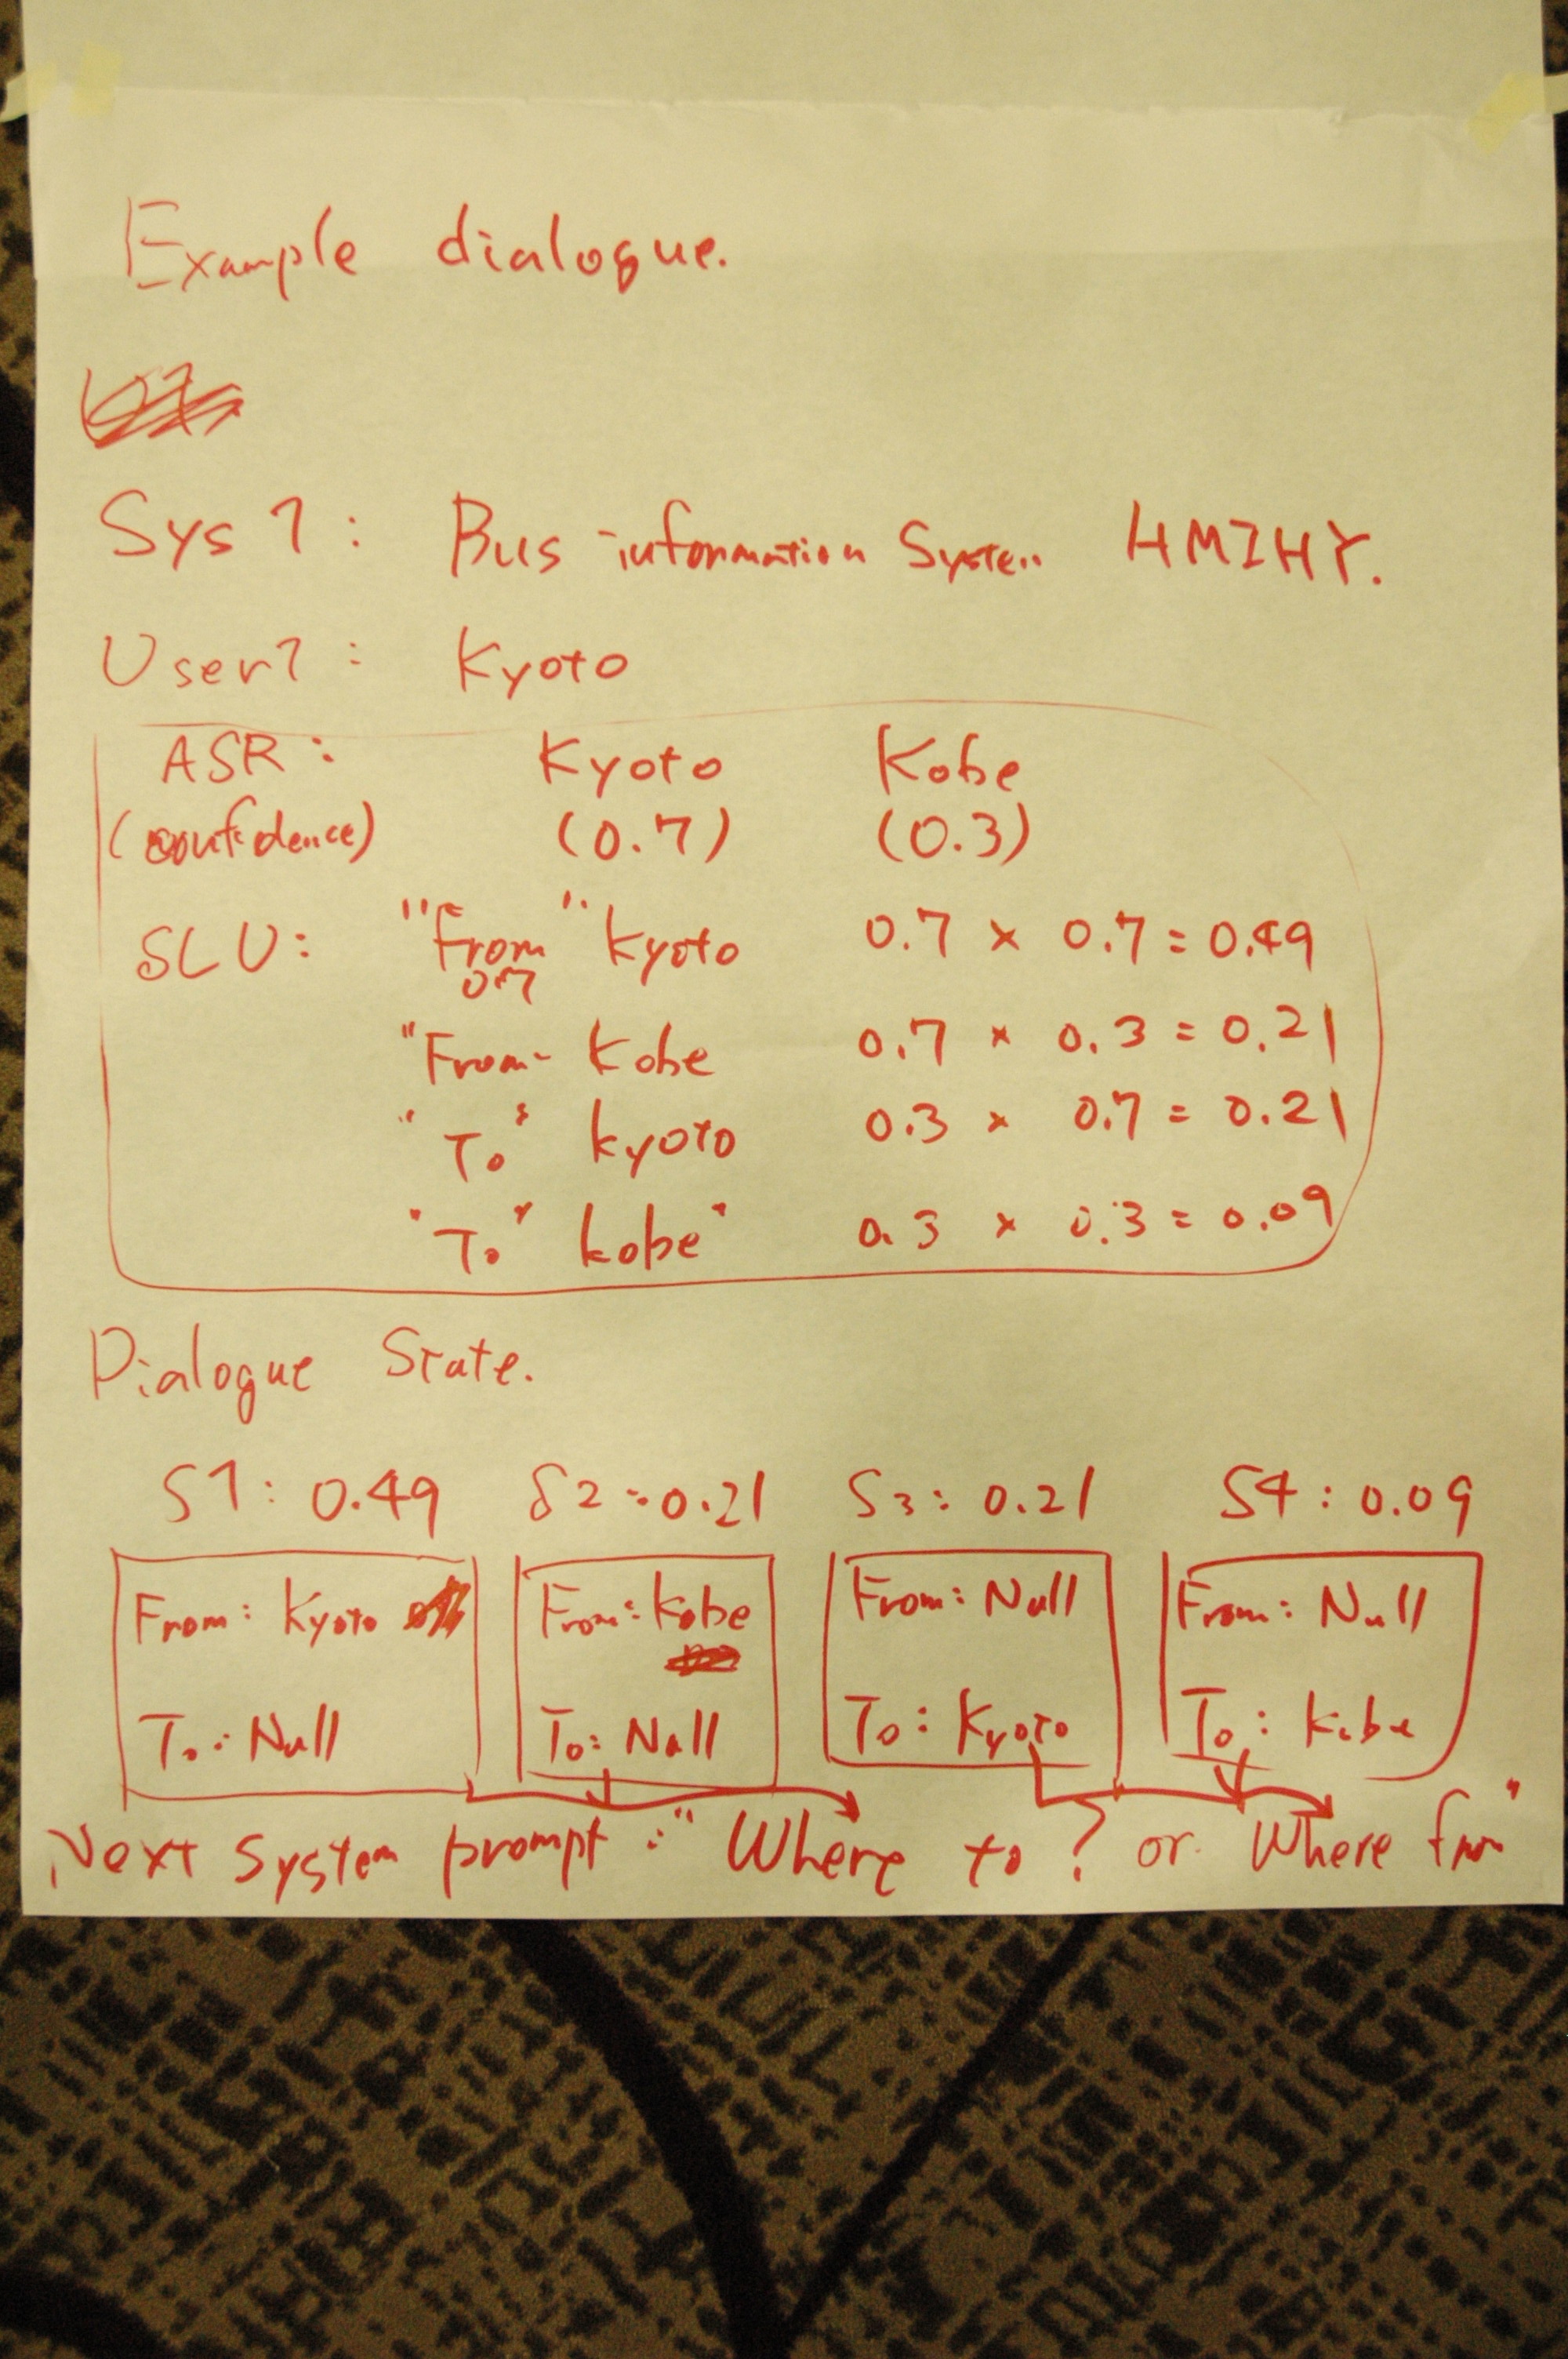 Example dialogue.
Sys 1: Bus information System HMIHY.
User1: Kyoto
ASR: Kyoto Kobe
(confidence) (0.7) (0.3)
SLU: "From" Kyoto 0.7 x 0.7 = 0.49
0.7
"From" Kobe 0.7 x 0.3 = 0.21
"To" Kyoto 0.3 x 0.7 = 0.21
"To" Kobe" 0.3 x 0.3 = 0.09
Dialogue State.
S1: 0.49 S2: 0.21 S3: 0.21 S4: 0.09
From: Kyoto From: Kobe From: Null From: Null
To: Null To: Null To: Kyoto To: Kobe
Next System prompt: "Where to? or Where from"